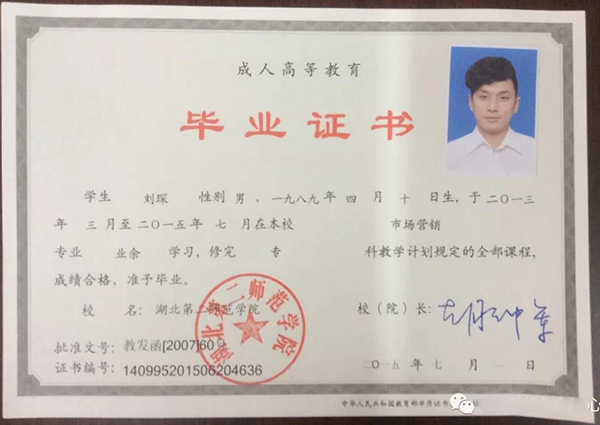 成人高等教育
毕业证书
学生 刘琛 性别 男，一九八九年 四 月 十 日生，于二〇一三
年 三 月至二〇一五年 七 月在本校 市场营销
专业 业余 学习，修完 专 科教学计划规定的全部课程，
成绩合格，准予毕业。
校 名：湖北第二师范学院 校（院）长：
批准文号：教发函[2007]60号
证书编号：140995201506204636 二〇一五年 七 月 一 日
湖北第二师范学院
中华人民共和国教育部学历证书
心